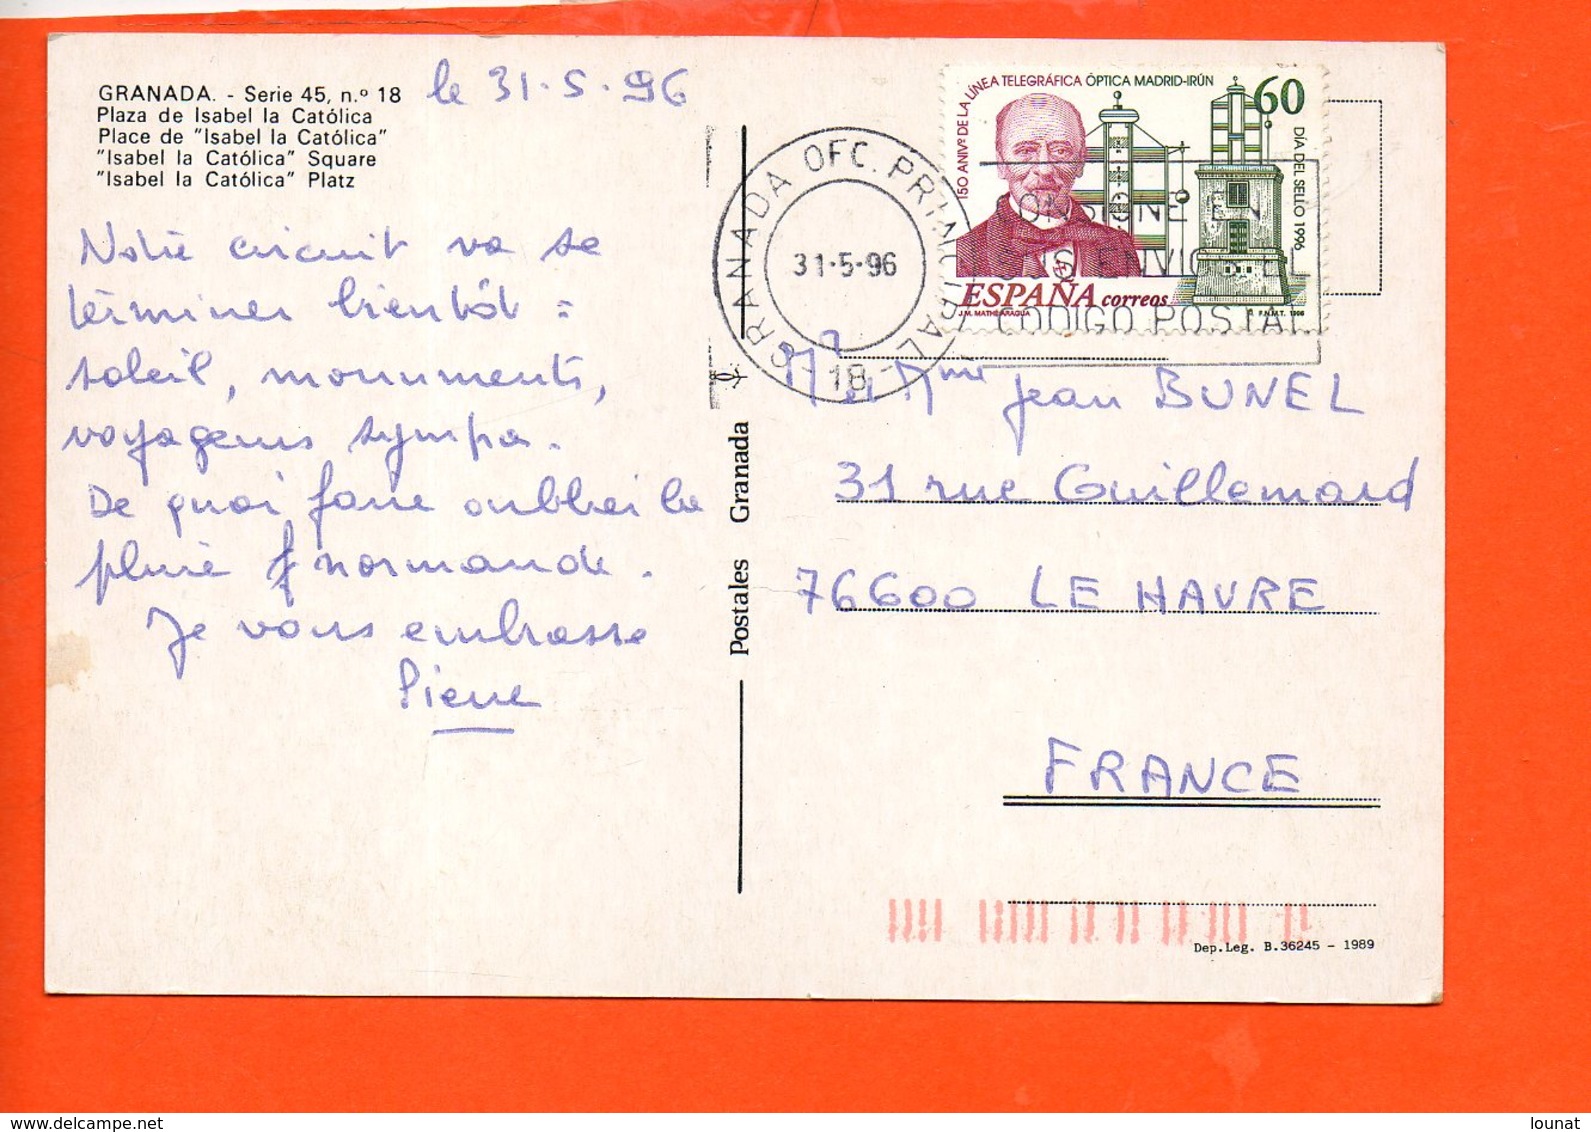 GRANADA. - Serie 45, n.º 18
Plaza de Isabel la Católica
Place de "Isabel la Católica"
"Isabel la Católica" Square
"Isabel la Católica" Platz
le 31.5.96
Notre circuit va se
terminer bientôt :
soleil, monuments,
voyageurs sympa.
De quoi faire oublier la
pluie normande.
Je vous embrasse
Pierre
Postales Granada
150 ANIVº DE LA LÍNEA TELEGRÁFICA ÓPTICA MADRID-IRÚN
60
DÍA DEL SELLO 1996
ESPAÑA correos
J.M. MATHE ARAGUA
F.N.M.T. 1996
GRANADA OFC. PRINCIPAL
31-5-96
-18-
CONSIGNE EN
SUS ENVIOS EL
CODIGO POSTAL
Mr et Mme Jean BUNEL
31 rue Guillemard
76600 LE HAVRE
FRANCE
Dep.Leg. B.36245 - 1989
lounat